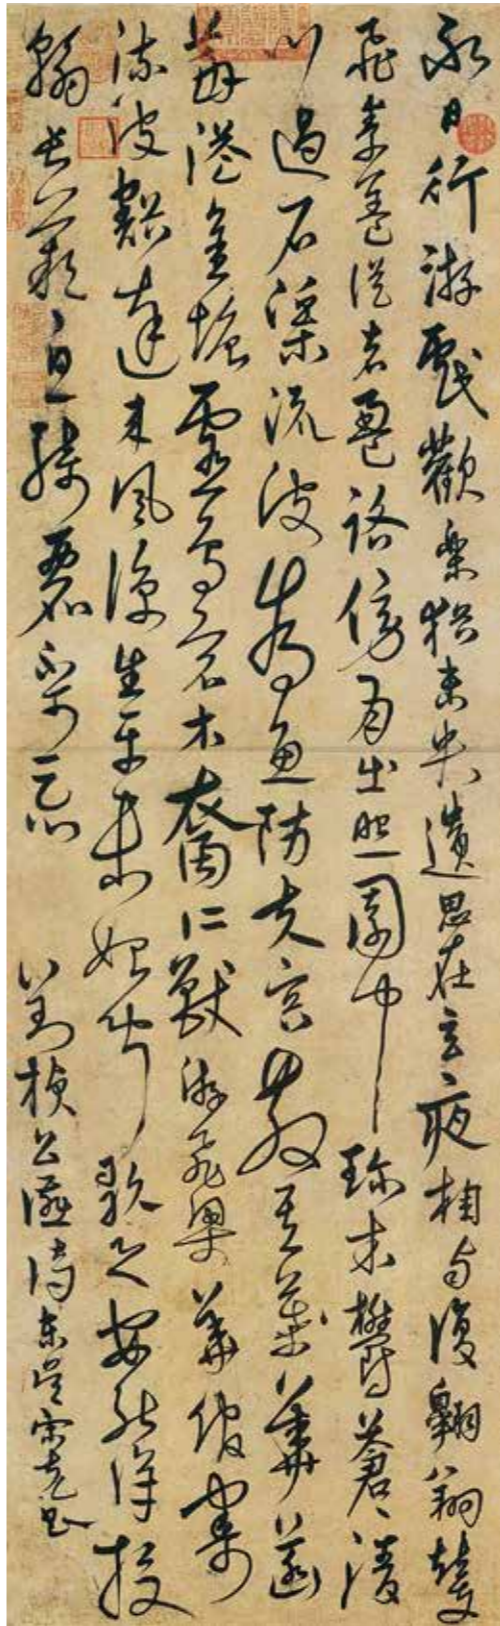 永日行游戲歡樂猶未央遺思在玄夜相与復翱翔輦
飛素蓋從者盈路傍月出照園中珍木鬱蒼〻清
川過石渠流波為魚防夫容散其華菡
萏溢金塘靈鳥宿水裔仁獸游飛梁華館寄
流波豁達来風涼生平未始聞歌之安能詳投
翰長歎息綺麗不可忘 右劉楨公讌詩東吳宋克書